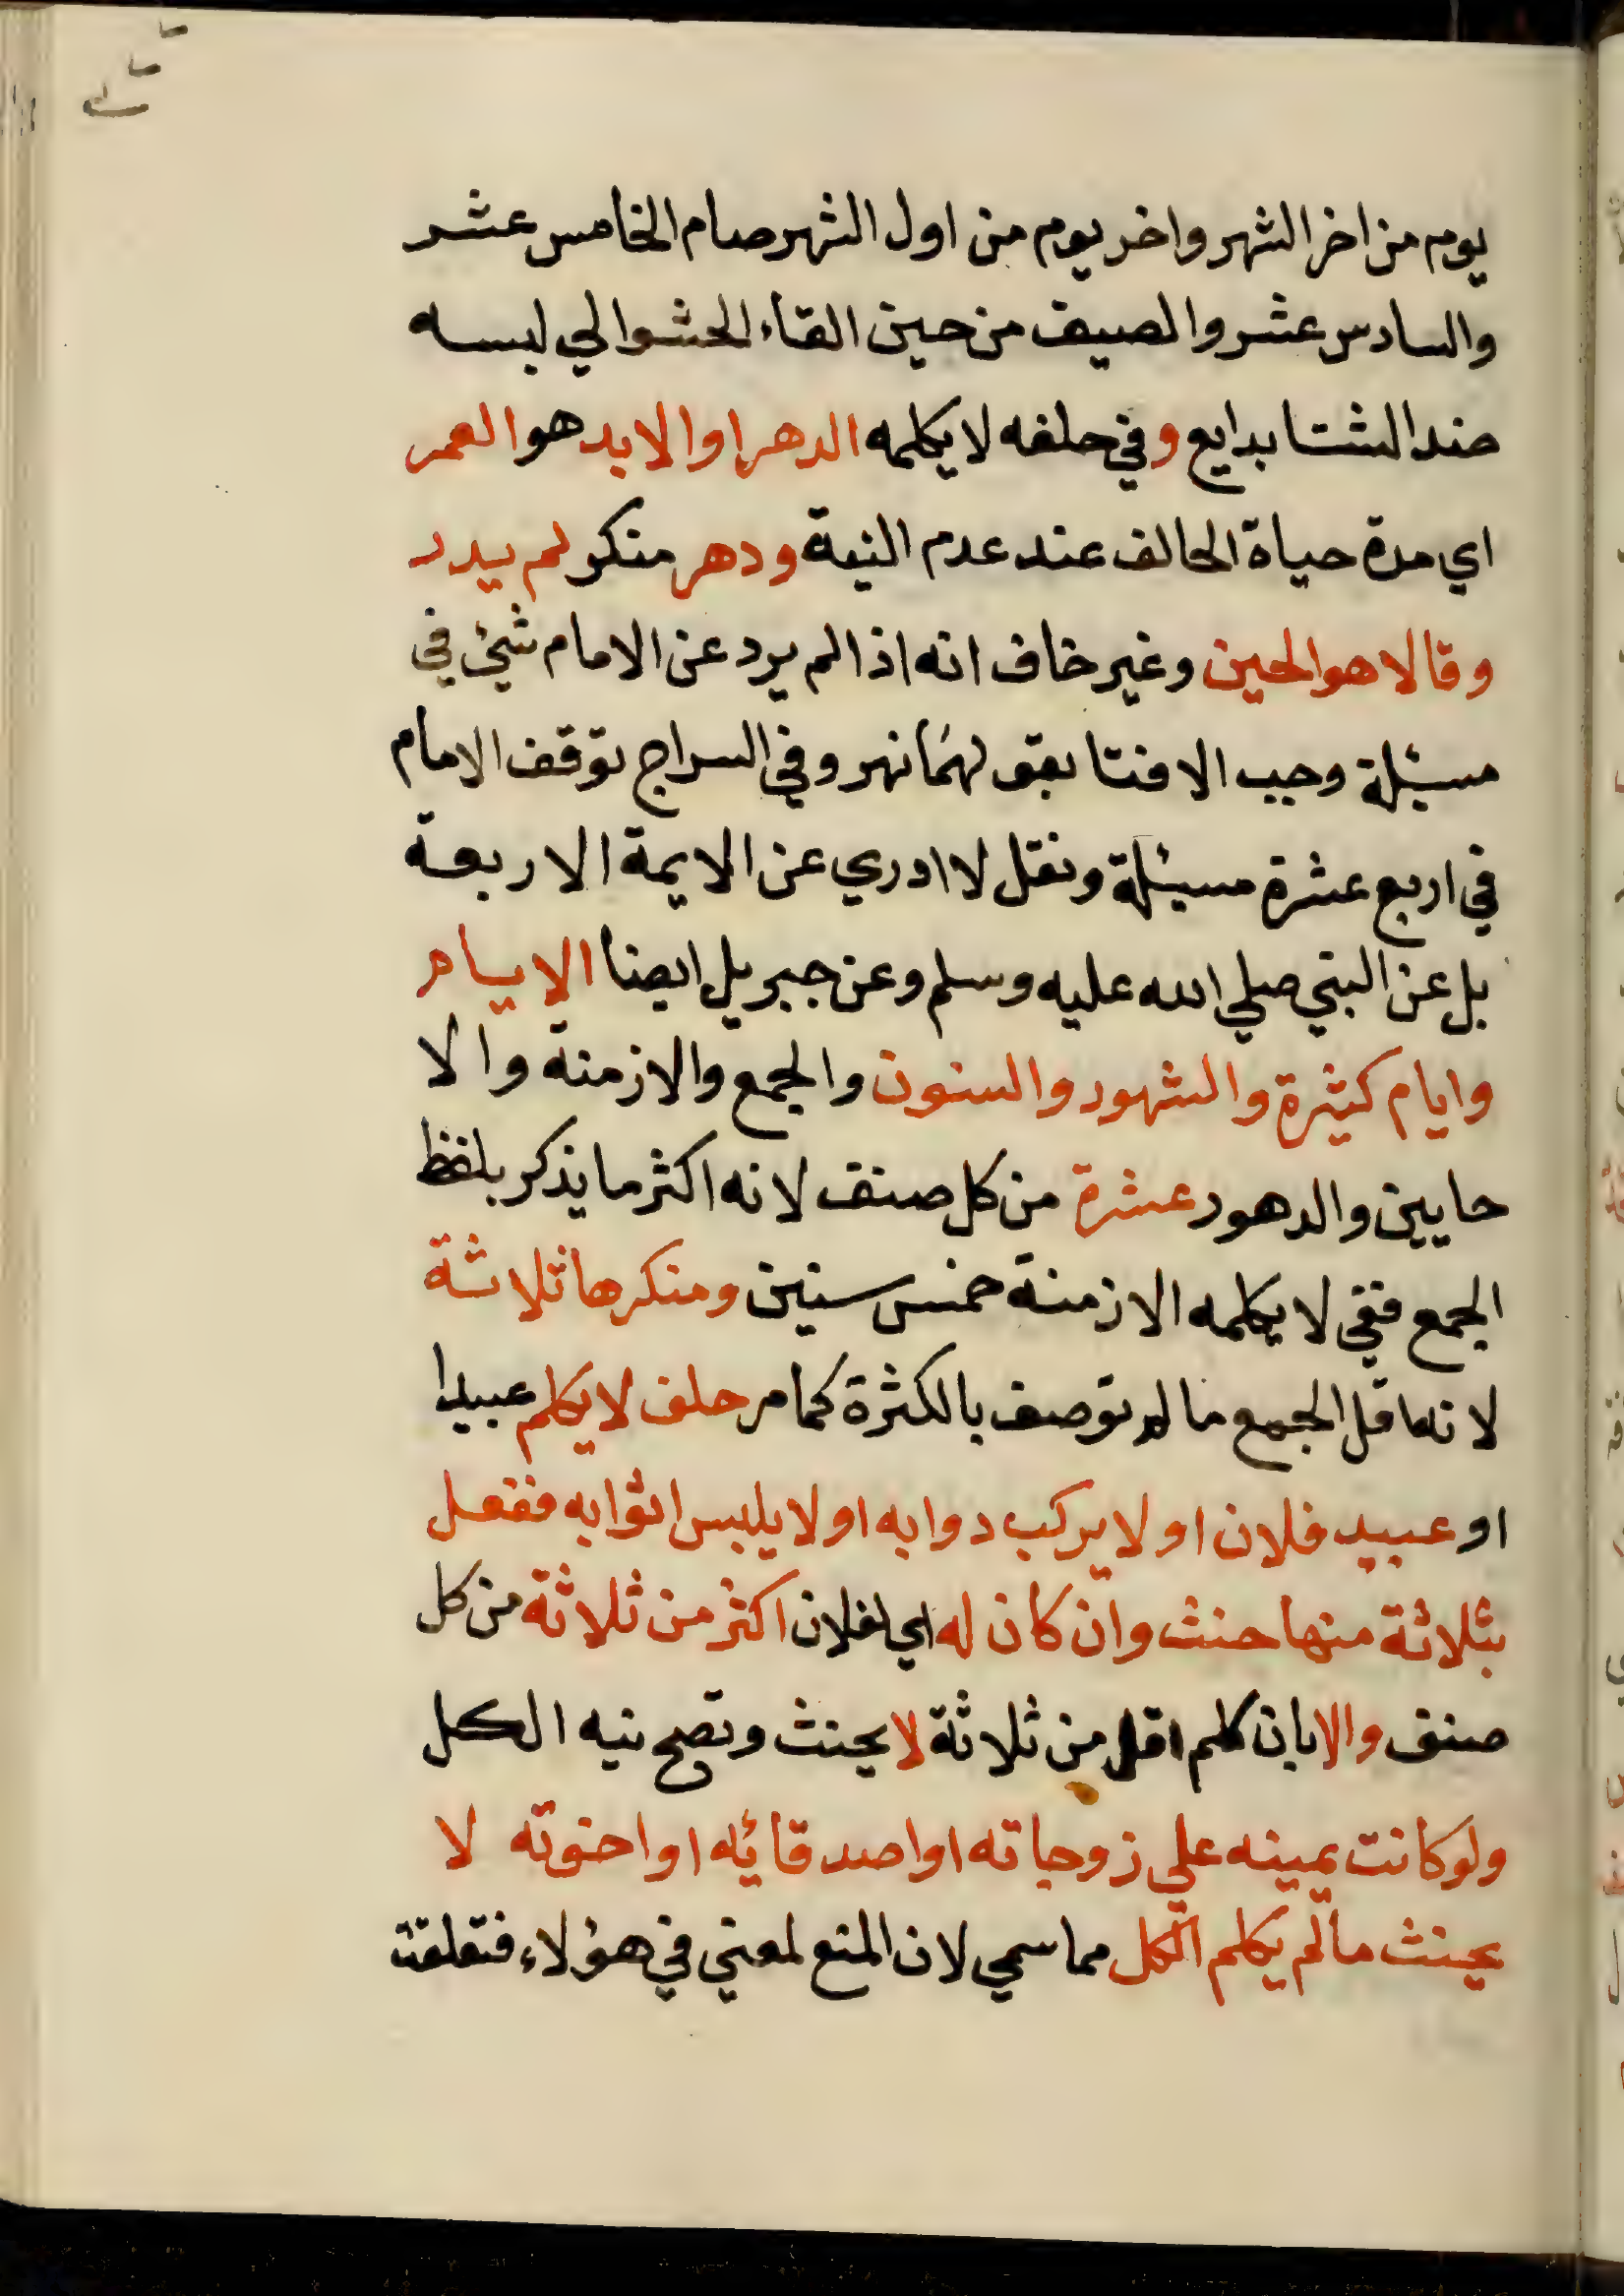 يوم من اخر الشهر واخر يوم من اول الشهر صام الخامس عشر
والسادس عشر والصيف من حين القاء الحشو الي لبسه
ضد الشتا بدايع وفي حلفه لا يكلمه الدهر او الابد هو العمر
اي مدة حياة الحالف عند عدم النية ودهر منكر لم يدر
وقالا هو الحين وغير خاف انه اذا لم يرد عن الامام شئ في
مسئلة وجب الافتا بقولهما نهر وفي السراج توقف الامام
في اربع عشرة مسئلة ونقل لا ادري عن الايمة الاربعة
بل عن النبي صلي الله عليه وسلم وعن جبريل ايضا الايام
وايام كثيرة والشهور والسنون والجمع والازمنة والا
حايين والدهور عشرة من كل صنف لانه اكثر ما يذكر بلفظ
الجمع ففي لا يكلمه الازمنة خمس سنين ومنكرها ثلاثة
لانه اقل الجمع ما لم توصف بالكثرة كما مر حلف لا يكلم عبيدا
او عبيد فلان او لا يركب دوابه او لا يلبس اثوابه ففعل
بثلاثة منها حنث وان كان له اي لفلان اكثر من ثلاثة من كل
صنف والا بان كلم اقل من ثلاثة لا يحنث وتصح نيه الكل
ولو كانت يمينه علي زوجاته او اصدقائه او اخوته لا
يحنث ما لم يكلم الكل مما سمي لان المنع لمعني في هؤلاء فتعلقت